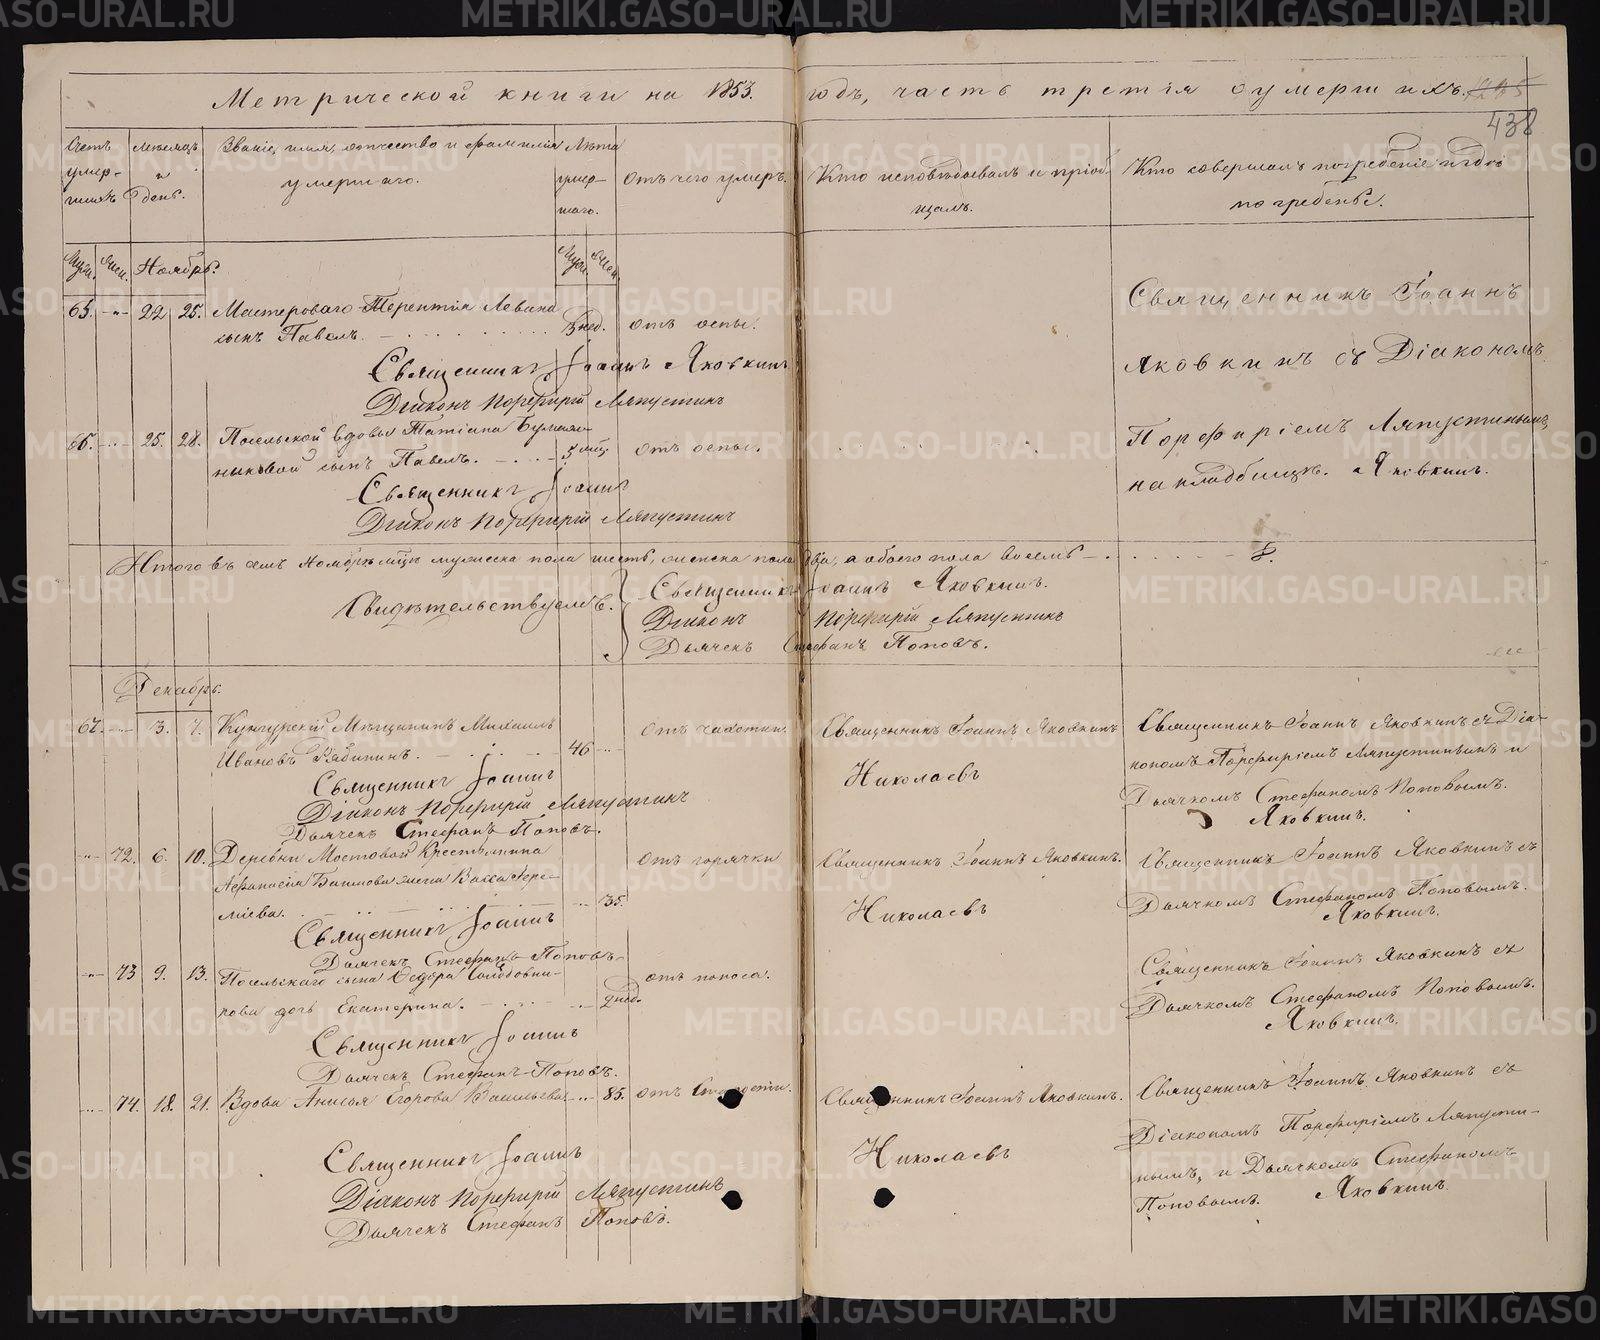 Метрической книги на 1853. годъ, часть третія о умершихъ.
438
Счетъ умер-шихъ
Мѣсяцъ и день.
Званіе, имя, отчество и фамилія умершаго.
Лѣта умер-шаго.
Отъ чего умеръ.
Кто исповѣдовалъ и пріоб-щалъ.
Кто совершалъ погребеніе и гдѣ погребены.
Муж. Жен. Ноябрь. Муж. Жен.
65. 22. 25. Мастероваго Терентія Левина
сынъ Павелъ. 3 нед. отъ оспы.
Священникъ Іоаннъ Яковкинъ
Діаконъ Порфирій Ляпустинъ
Священникъ Іоаннъ
Яковкинъ съ Діакономъ
Порфиріемъ Ляпустинымъ
на кладбищѣ. Яковкинъ.
66. 25. 28. Посельской вдовы Татіаны
сынъ Павелъ. 5 мѣс. отъ оспы.
Священникъ Іоаннъ
Діаконъ Порфирій Ляпустинъ
Итого въ семъ Ноябрѣ мѣцѣ мужеска пола шесть, женска пола два, а обоего пола восемь 8.
Свидѣтельствуемъ.
Священникъ Іоаннъ Яковкинъ.
Діаконъ Порфирій Ляпустинъ
Дьячекъ Стефанъ Поповъ.
Декабрь.
67. 3. 7. Кунгурскій Мѣщанинъ Михаилъ
Ивановъ 46 отъ чахотки.
Священникъ Іоаннъ
Діаконъ Порфирій Ляпустинъ
Дьячекъ Стефанъ Поповъ.
Священникъ Іоаннъ Яковкинъ
Николаевъ
Священникъ Іоаннъ Яковкинъ съ Діа-
кономъ Порфиріемъ Ляпустинымъ и
Дьячкомъ Стефаномъ Поповымъ.
Яковкинъ.
72. 6. 10. Деревни Мостовой Крестьянина
Афанасія жена Васса
35. отъ горячки
Священникъ Іоаннъ
Дьячекъ Стефанъ Поповъ.
Священникъ Іоаннъ Яковкинъ.
Николаевъ
Священникъ Іоаннъ Яковкинъ съ
Дьячкомъ Стефаномъ Поповымъ.
Яковкинъ.
73 9. 13. Посельскаго сына Федора Солодовни-
кова дочь Екатерина. 2 нед. отъ поноса.
Священникъ Іоаннъ
Дьячекъ Стефанъ Поповъ.
Священникъ Іоаннъ Яковкинъ съ
Дьячкомъ Стефаномъ Поповымъ.
Яковкинъ.
74. 18. 21. Вдова Анисья Егорова Васильева 85. отъ Старости.
Священникъ Іоаннъ
Діаконъ Порфирій Ляпустинъ
Дьячекъ Стефанъ Поповъ.
Священникъ Іоаннъ Яковкинъ.
Николаевъ
Священникъ Іоаннъ Яковкинъ съ
Діакономъ Порфиріемъ Ляпусти-
нымъ, и Дьячкомъ Стефаномъ
Поповымъ. Яковкинъ.
METRIKI.GASO-URAL.RU